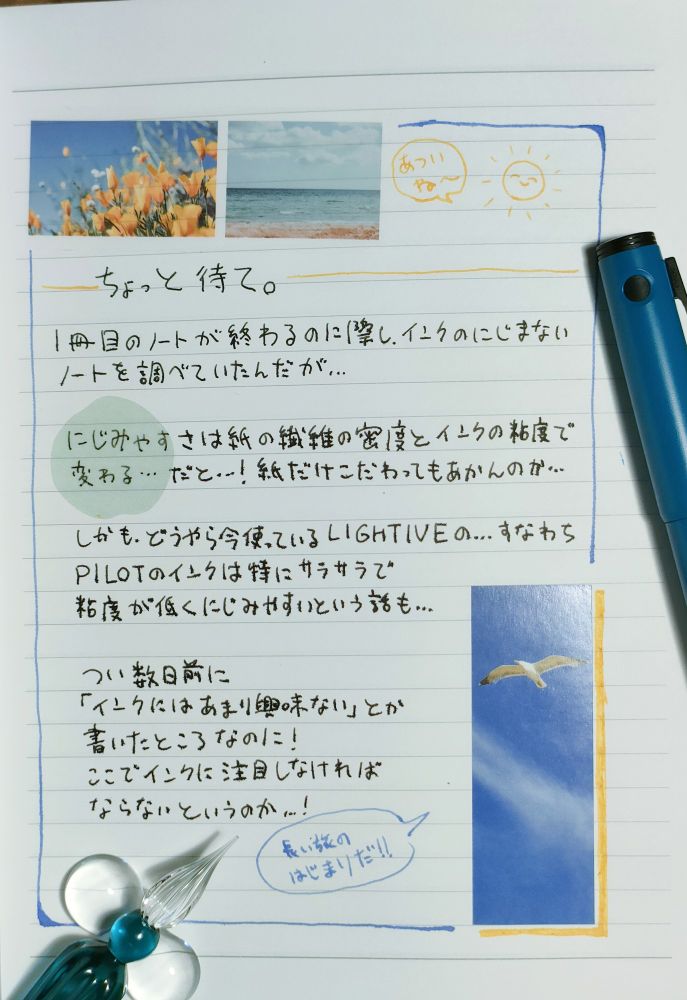 あつい
ね〜
ちょっと待て。
1冊目のノートが終わるのに際し、インクのにじまない
ノートを調べていたんだが…
にじみやすさは紙の繊維の密度とインクの粘度で
変わる…だと…!紙だけこだわってもあかんのか…
しかも、どうやら今使っているLIGHTIVEの…すなわち
PILOTのインクは特にサラサラで
粘度が低くにじみやすいという話も…
つい数日前に
「インクにはあまり興味ない」とか
書いたところなのに!
ここでインクに注目しなければ
ならないというのか…!
長い旅の
はじまりだ!!